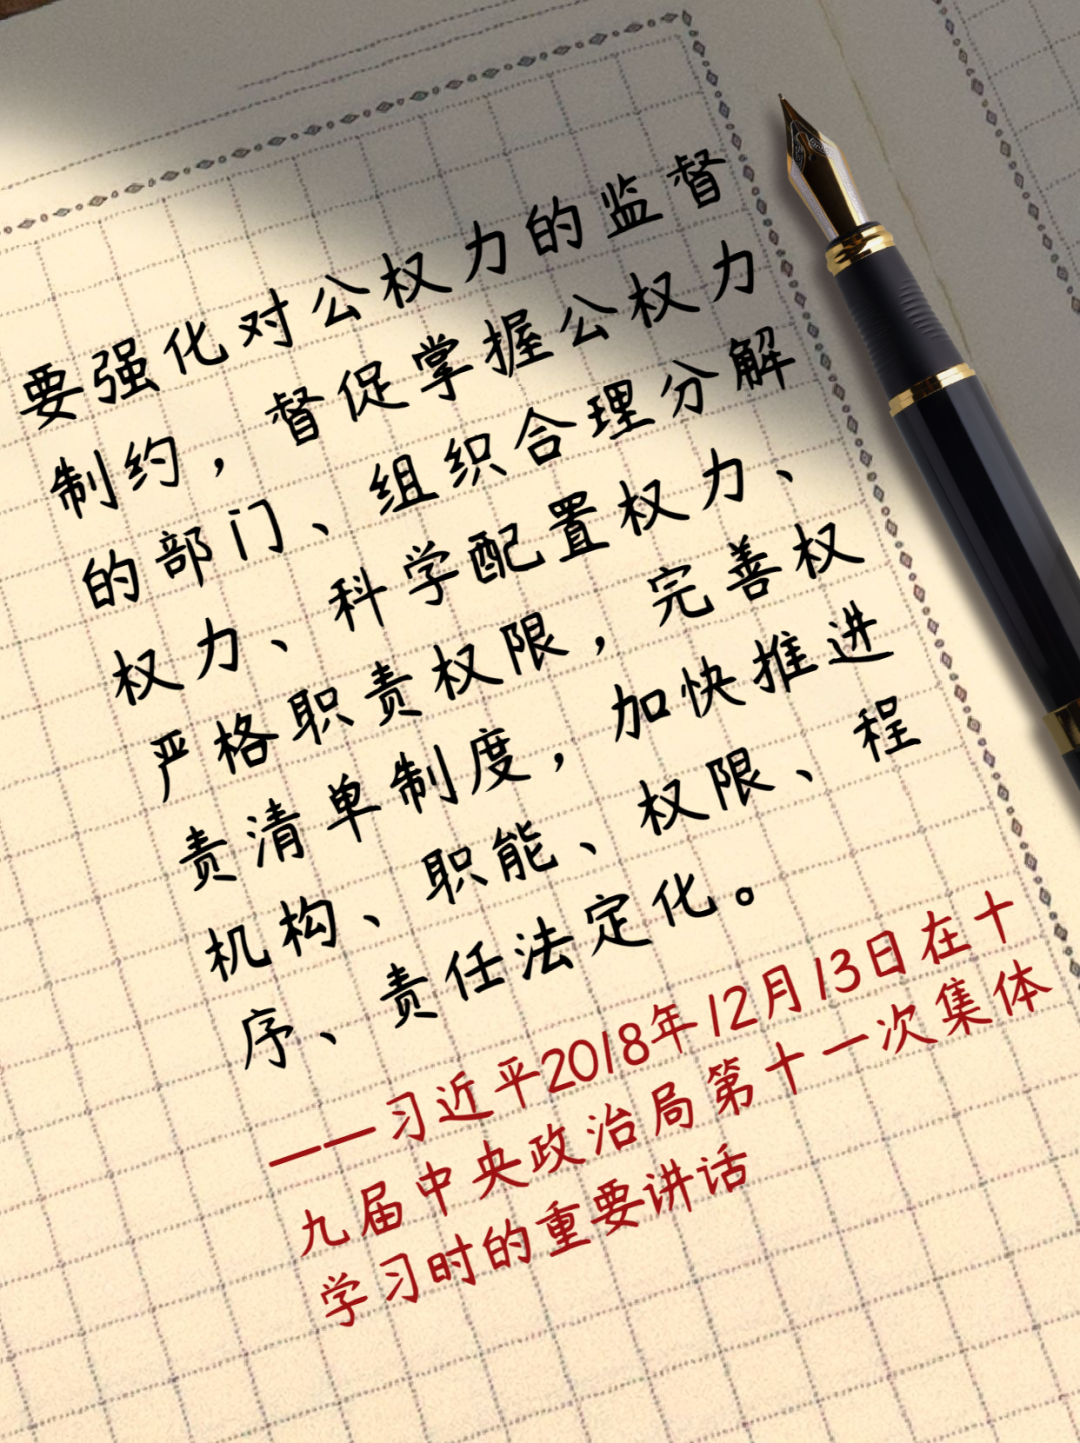 要强化对公权力的监督
制约，督促掌握公权力
的部门、组织合理分解
权力、科学配置权力、
严格职责权限，完善权
责清单制度，加快推进
机构、职能、权限、程
序、责任法定化。
——习近平2018年12月13日在十
九届中央政治局第十一次集体
学习时的重要讲话